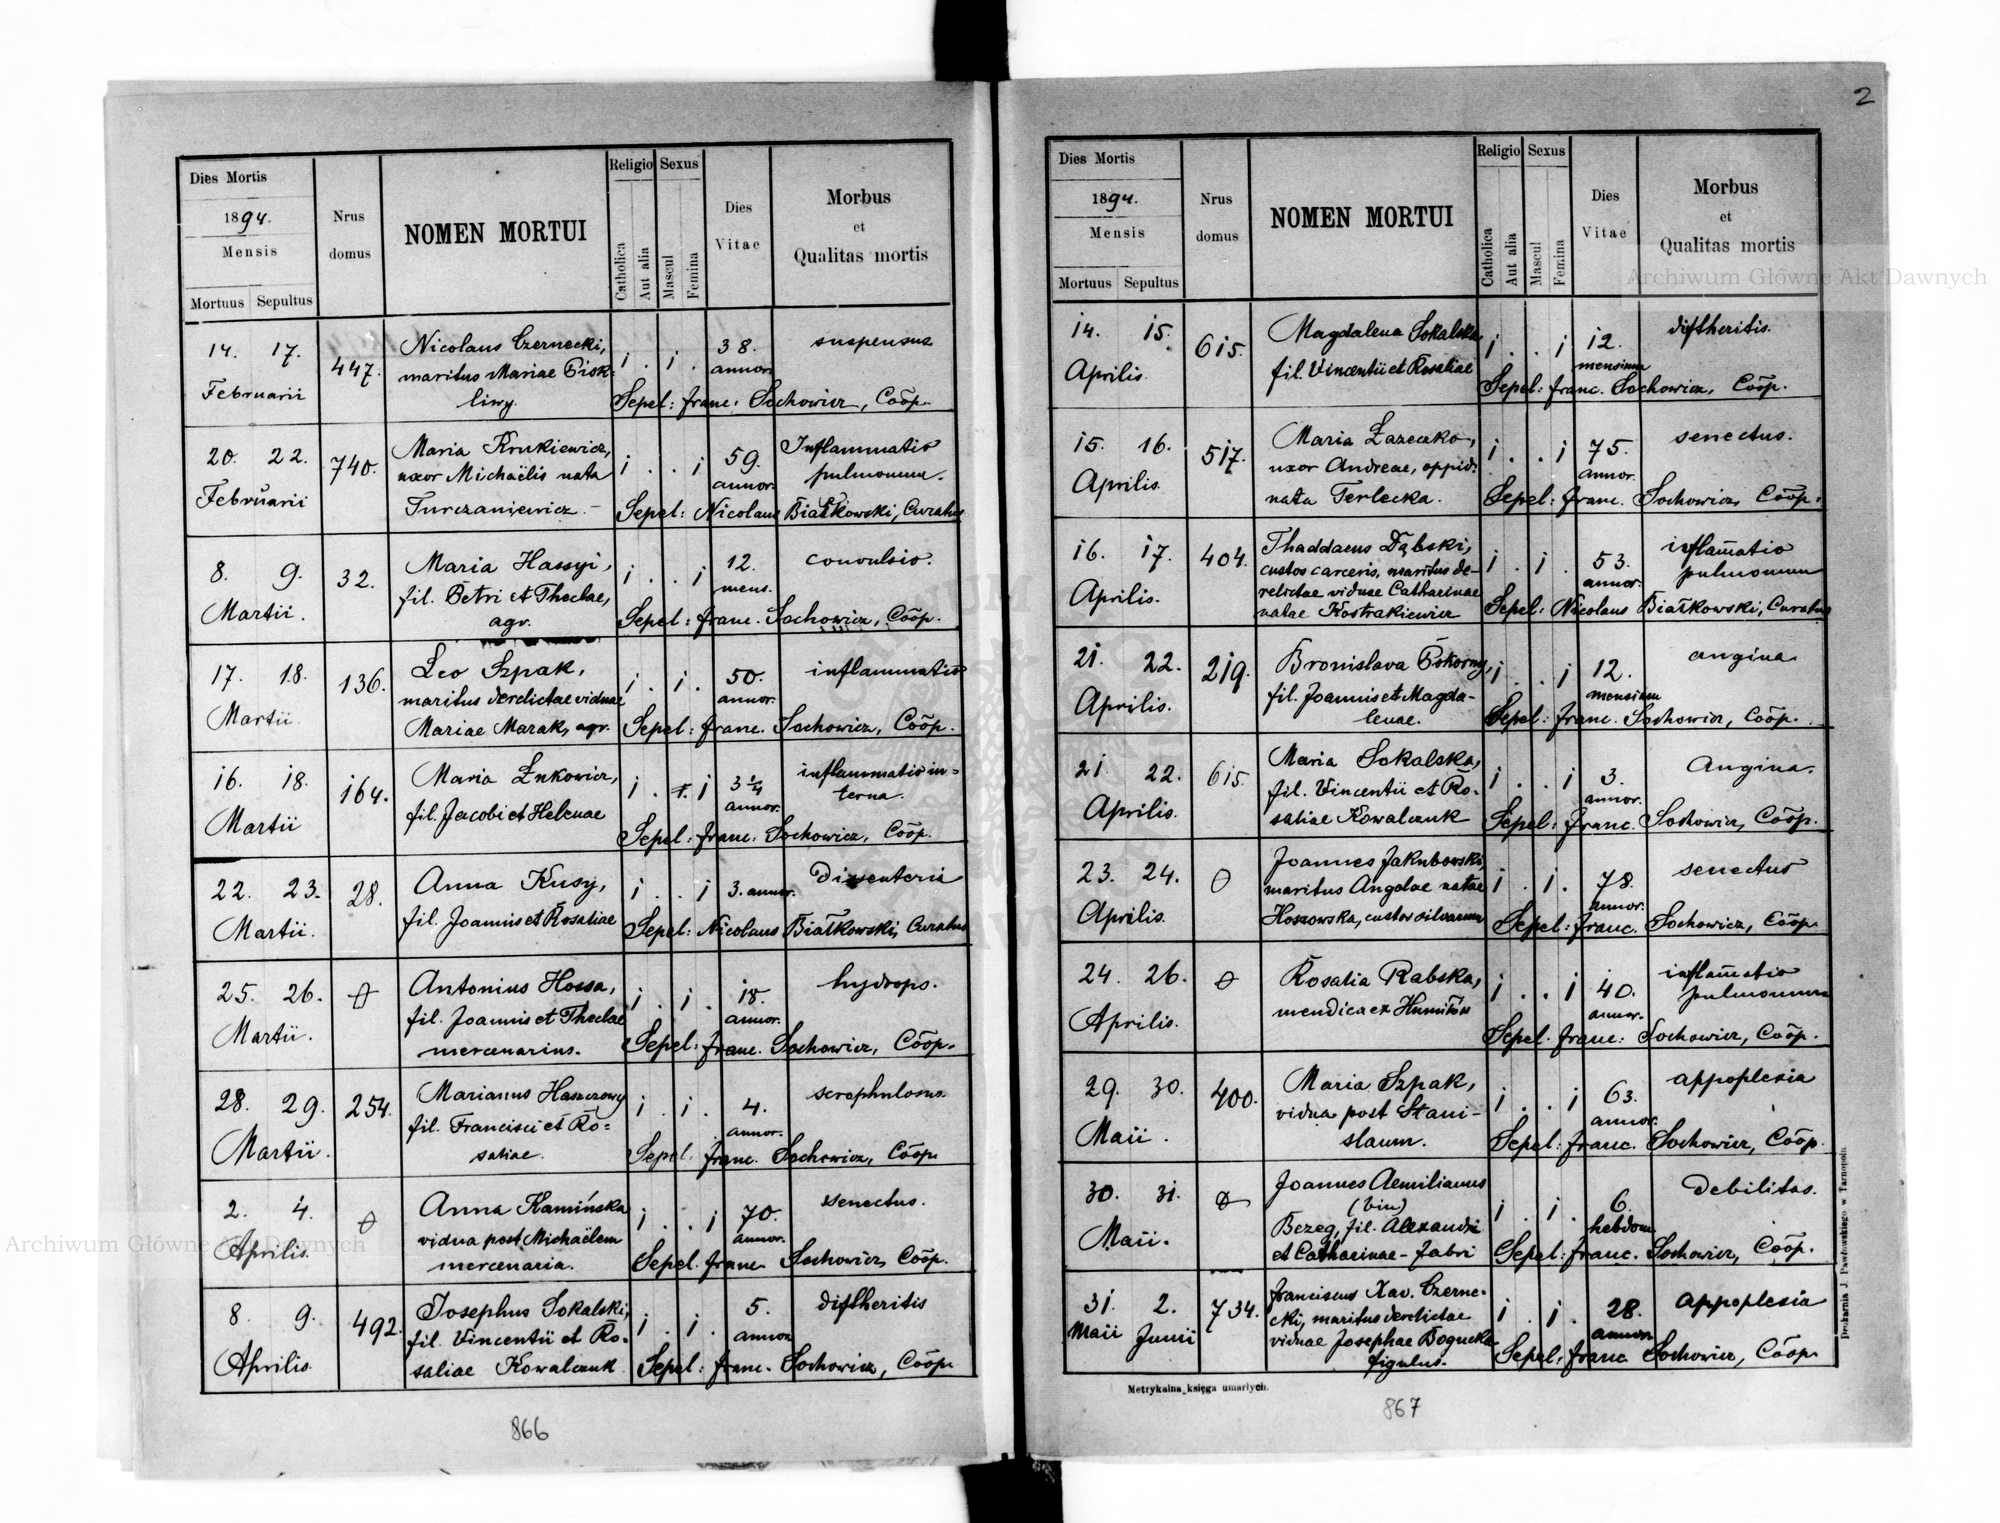 2
Dies Mortis
1894.
Mensis
Mortuus Sepultus
Nrus
domus
NOMEN MORTUI
Religio
Catholica
Aut alia
Sexus
Mascul
Femina
Dies
Vitae
Morbus
et
Qualitas mortis
14. 17.
Februarii
447.
Nicolaus Czernecki,
maritus Mariae Pisk-
liwy.
i . i .
38.
annor.
suspensus
Sepel: franc. Sochowicz, Coop.
20. 22.
Februarii
740.
Maria Krukiewicz,
uxor Michaëlis nata
Turczaniewicz. -
i . . i
59.
annor.
Inflammatio
pulmonum.
Sepel: Nicolaus Białkowski, Curatus
8. 9.
Martii.
32.
Maria Hassyi,
fil. Petri et Theclae,
agr.
i . . i
12.
mens.
convulsio.
Sepel: franc. Sochowicz, Coop.
17. 18.
Martii
136.
Leo Szpak,
maritus derelictae viduae
Mariae Marak, agr.
i . i .
50.
annor.
inflammatio
Sepel: franc. Sochowicz, Coop.
16. 18.
Martii
164.
Maria Żukowicz,
fil. Jacobi et Helenae
i . . i
3 1/4
annor.
inflammatio in-
terna.
Sepel: franc. Sochowicz, Coop.
22. 23.
Martii.
28.
Anna Kusy,
fil. Joannis et Rosaliae
i . . i
3. annor.
Dissenteria
Sepel: Nicolaus Białkowski, Curatus
25. 26.
Martii.
0
Antonius Hossa,
fil. Joannis et Theclae
mercenarius.
i . i .
18.
annor.
hydrops.
Sepel: franc. Sochowicz, Coop.
28. 29.
Martii.
254.
Marianus Haszczowy
fil. Francisci et Ro=
saliae.
i . i .
4.
annor.
scrophulosus.
Sepel: franc. Sochowicz, Coop.
2. 4.
Aprilis.
0
Anna Kamińska
vidua post Michaëlem
mercenaria.
i . . i
70.
annor.
senectus.
Sepel. franc. Sochowicz, Coop.
8. 9.
Aprilis.
492.
Josephus Sokalski,
fil. Vincentii et Ro-
saliae Kowalczuk
i . i .
5.
annor.
diftheritis
Sepel: franc. Sochowicz, Coop.
866
Dies Mortis
1894.
Mensis
Mortuus Sepultus
Nrus
domus
NOMEN MORTUI
Religio
Catholica
Aut alia
Sexus
Mascul
Femina
Dies
Vitae
Morbus
et
Qualitas mortis
14. 15.
Aprilis.
615.
Magdalena Sokalska
fil. Vincentii et Rosaliae
i . . i
12.
mensium
diftheritis.
Sepel: franc. Sochowicz, Coop.
15. 16.
Aprilis.
517.
Maria Łazeczko,
uxor Andreae, oppid.
nata Terlecka.
i . . i
75.
annor.
senectus.
Sepel: franc. Sochowicz, Coop.
16. 17.
Aprilis.
404.
Thaddaeus Dąbski,
custos carceris, maritus de-
relictae viduae Catharinae
natae Kostrakiewicz
i . i .
53.
annor.
inflam̄atio
pulmonum
Sepel: Nicolaus Białkowski, Curatus
21. 22.
Aprilis.
219.
Bronislava Pokorny,
fil. Joannis et Magda-
lenae.
i . . i
12.
mensium
angina
Sepel: franc. Sochowicz, Coop.
21. 22.
Aprilis.
615.
Maria Sokalska,
fil. Vincentii et Ro-
saliae Kowalczuk
i . . i
3.
annor.
Angina.
Sepel: franc. Sochowicz, Coop.
23. 24.
Aprilis.
0
Joannes Jakubowski,
maritus Angelae natae
Hoszowska, custos silvarum
i . i .
78.
annor.
senectus
Sepel: franc. Sochowicz, Coop.
24. 26.
Aprilis.
0
Rosalia Rabska,
mendica ex Humňów
i . . i
40.
annor.
inflam̄atio
pulmonum
Sepel. franc: Sochowicz, Coop.
29. 30.
Maii.
400.
Maria Szpak,
vidua post Stani-
slaum.
i . . i
63.
annor.
appoplexia
Sepel: franc. Sochowicz, Coop.
30. 31.
Maii.
0
Joannes Aemilianus
(bin)
Bezeg, fil. Alexandri
et Catharinae - fabri
i . i .
6.
hebdom.
Debilitas.
Sepel: franc. Sochowicz, Coop.
31. 2.
Maii Junii
734.
Franciscus Xav. Czerne-
cki, maritus derelictae
viduae Josephae Bogucka
figulus.
i . i .
28.
annor.
appoplexia
Sepel: franc Sochowicz, Coop.
Metrykalna księga umarłych.
Drukarnia J. Pawłowskiego w Tarnopolu
867
Archiwum Główne Akt Dawnych
Archiwum Główne Akt Dawnych